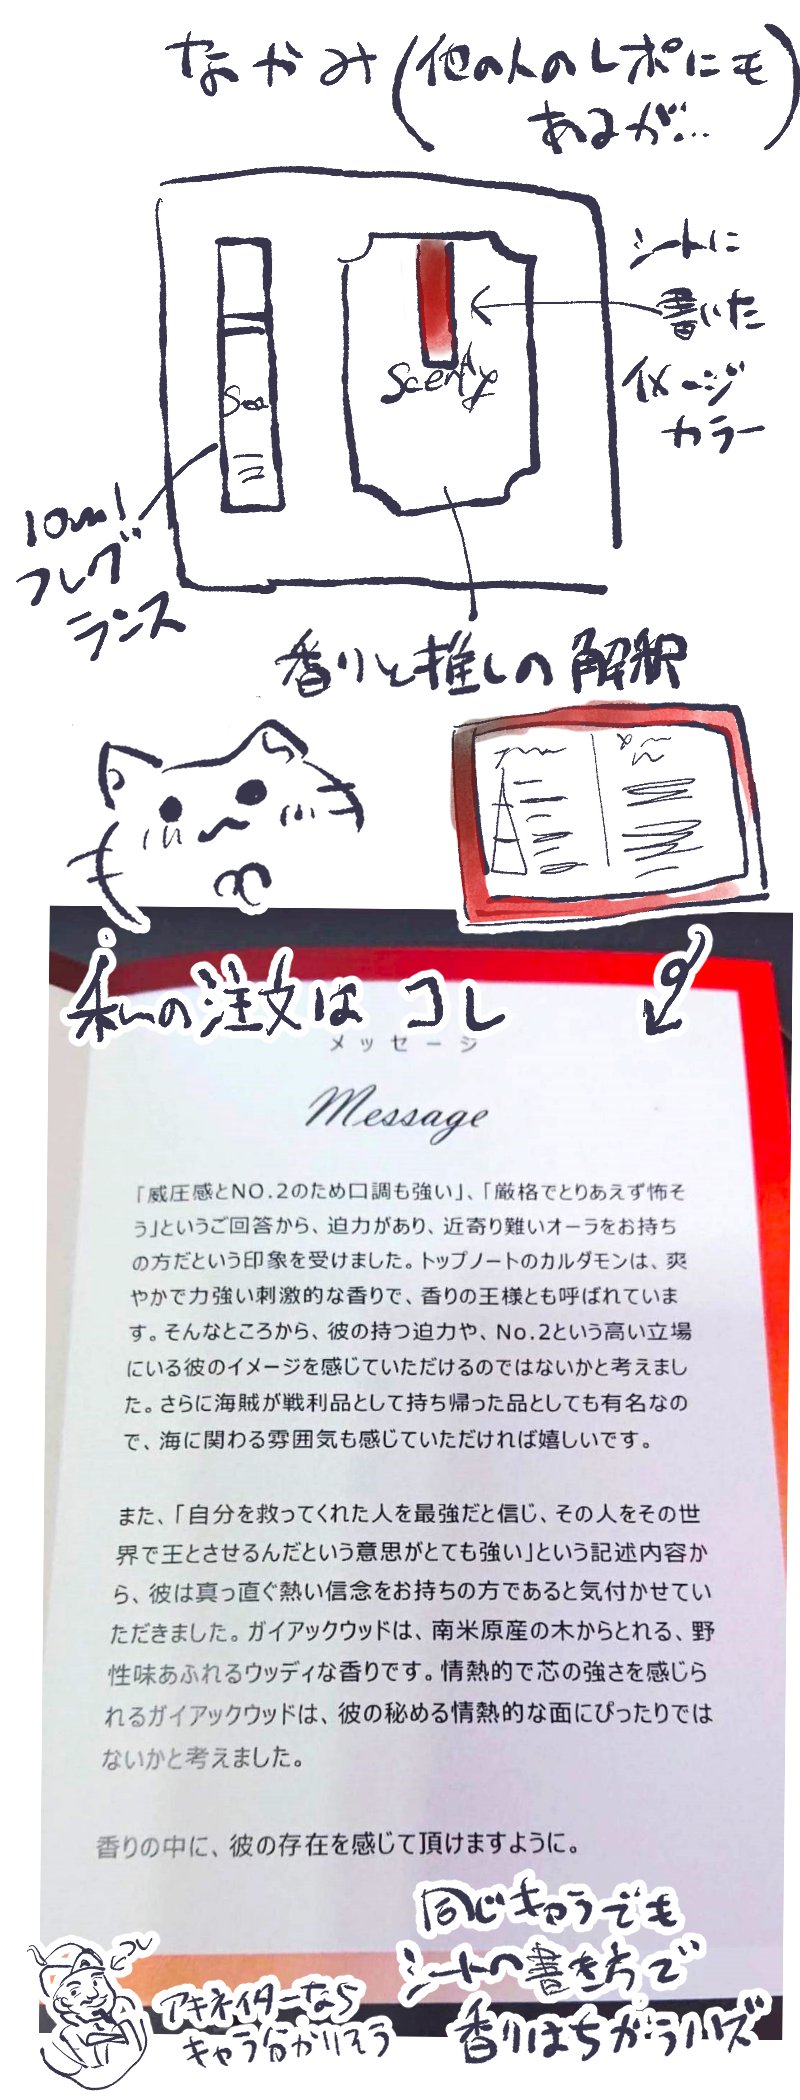 なかみ(他の人のレポにも
あるが…)
シートに
書いた
イメージ
カラー
Scenty
10ml
フレグ
ランス
香りと推しの解釈
私の注文は コレ
メッセージ
Message
「威圧感とNO.2のため口調も強い」、「厳格でとりあえず怖そ
う」というご回答から、迫力があり、近寄り難いオーラをお持ち
の方だという印象を受けました。トップノートのカルダモンは、爽
やかで力強い刺激的な香りで、香りの王様とも呼ばれていま
す。そんなところから、彼の持つ迫力や、No.2という高い立場
にいる彼のイメージを感じていただけるのではないかと考えまし
た。さらに海賊が戦利品として持ち帰った品としても有名なの
で、海に関わる雰囲気も感じていただければ嬉しいです。
また、「自分を救ってくれた人を最強だと信じ、その人をその世
界で王とさせるんだという意思がとても強い」という記述内容か
ら、彼は真っ直ぐ熱い信念をお持ちの方であると気付かせてい
ただきました。ガイアックウッドは、南米原産の木からとれる、野
性味あふれるウッディな香りです。情熱的で芯の強さを感じら
れるガイアックウッドは、彼の秘める情熱的な面にぴったりでは
ないかと考えました。
香りの中に、彼の存在を感じて頂けますように。
同じキャラでも
シートの書き方で
香りはちがうハズ
コレ
アキネイターなら
キャラ分かりそう